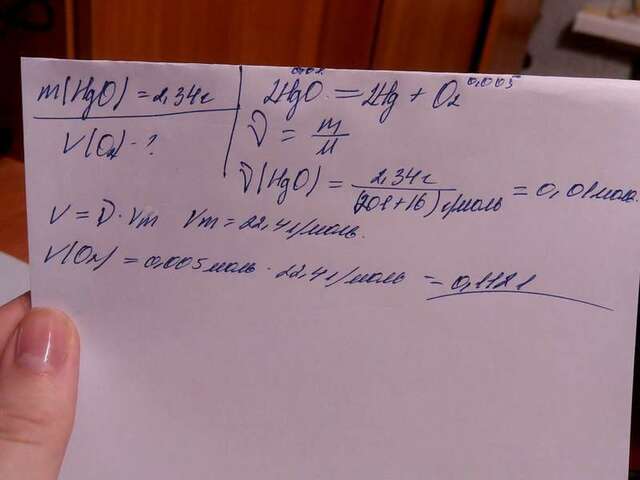 m(HgO) = 2,34г
V(O₂) - ?
0,02 0,005
2HgO = 2Hg + O₂
ν = m/M
ν(HgO) = 2,34г/(201+16)г/моль = 0,01моль
V = ν · Vm Vm = 22,4л/моль.
V(O₂) = 0,005моль · 22,4л/моль = 0,112л